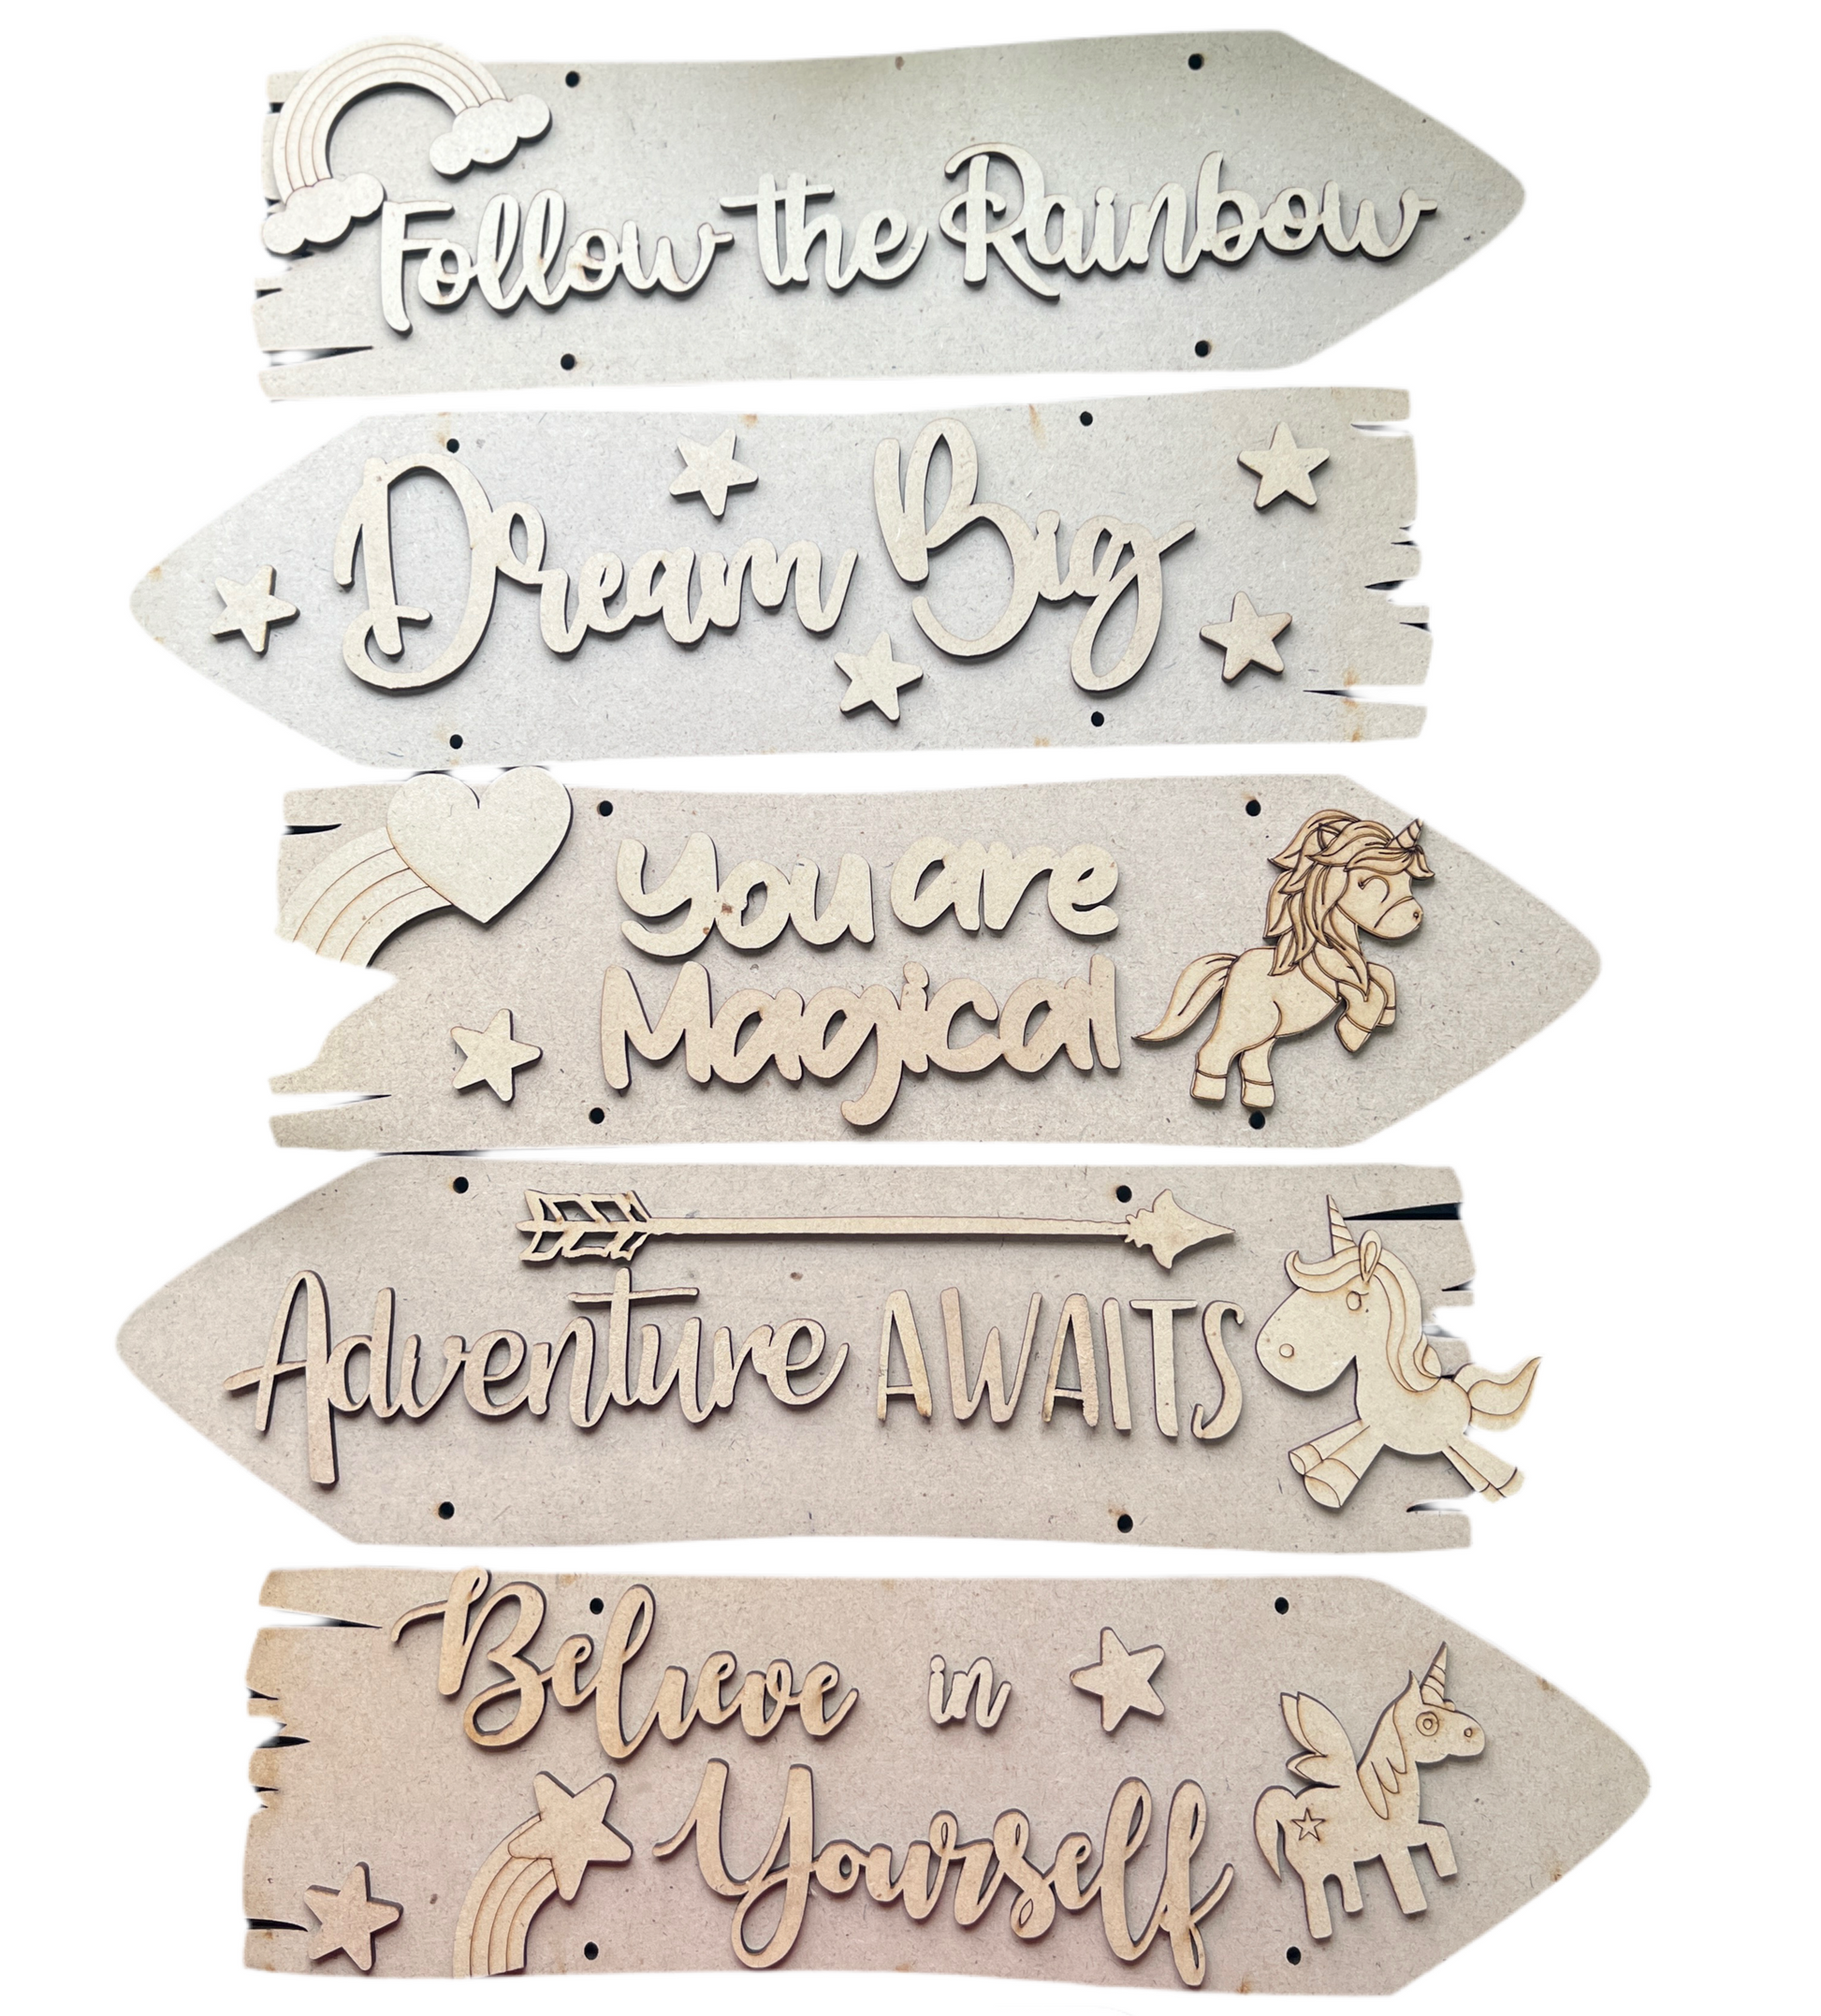 Follow the Rainbow
Dream Big
You are
Magical
Adventure AWAITS
Believe in
Yourself